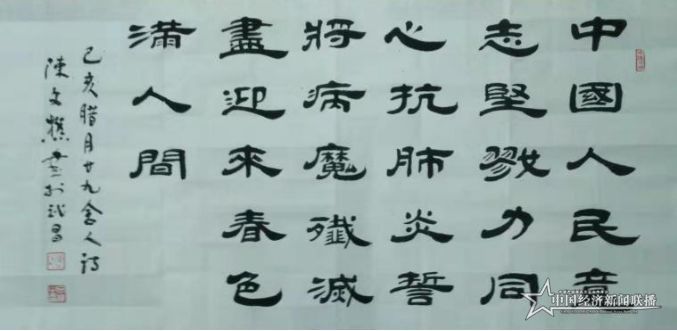 中國人民意
志堅戮力同
心抗肺炎誓
將病魔殲滅
盡迎來春色
滿人間
己亥腊月廿九舍人詩
陳文樵書於武昌
中国经济新闻联播